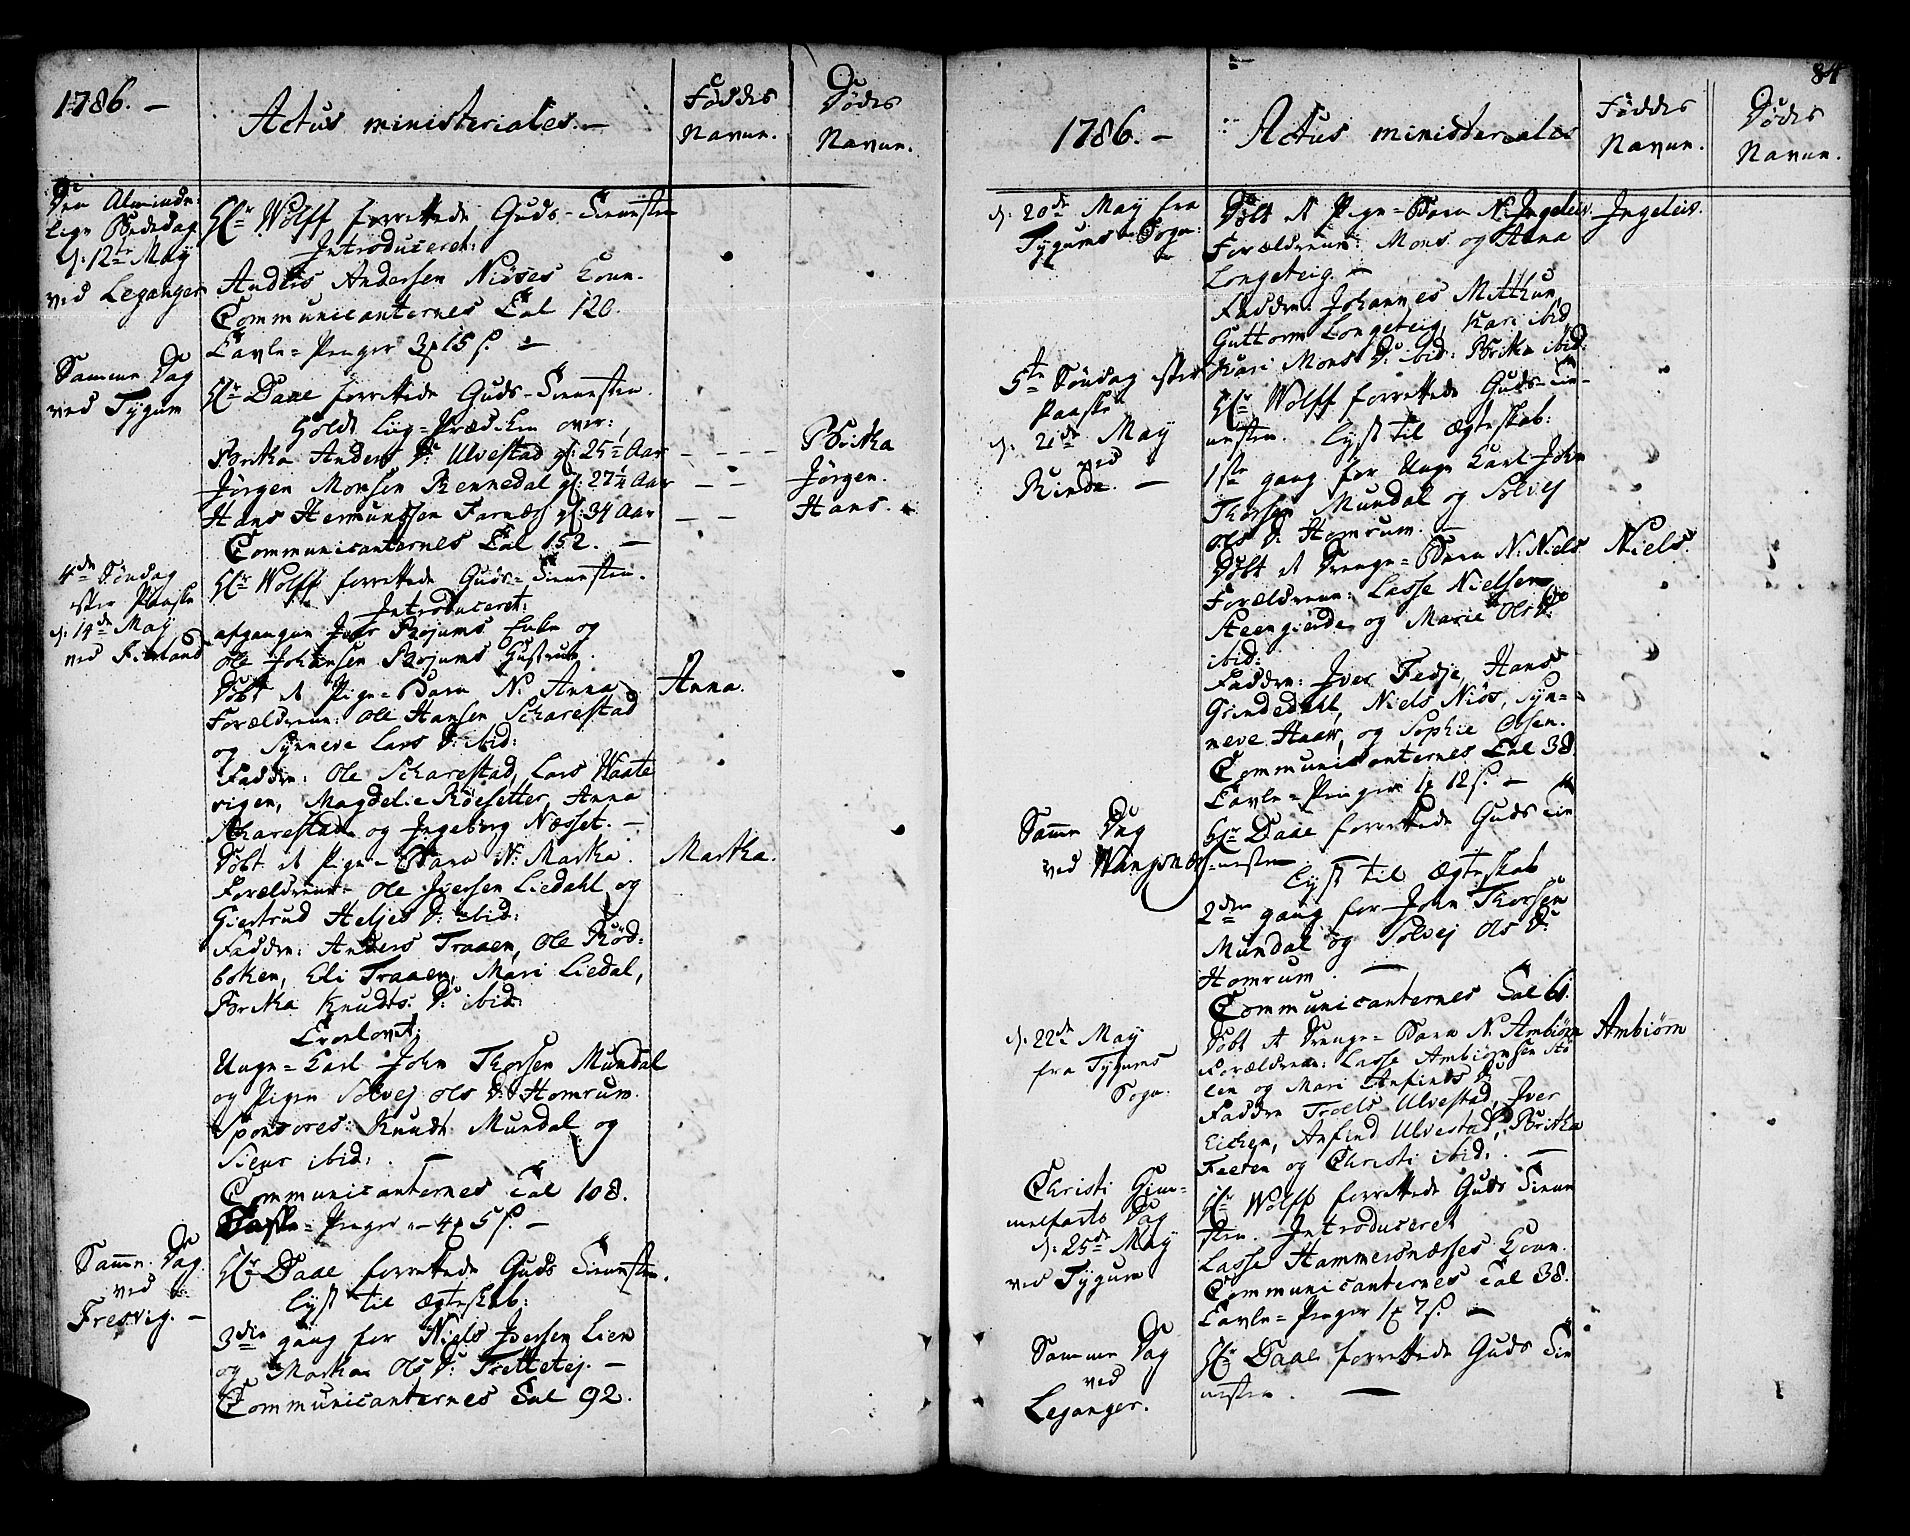 1786. –
Actus ministeriales. –
Føddes
Navne.
Dødes
Navne.
Den Alminde-
lige Bededag
d: 12te May
ved Leganger
Hr Wolff forrettede Guds-Tienesten
Introduceret:
Anders Andersen Niøses Kone.
Communicanternes Tal 120.
Tavle-Penger 3 15 s. –
Samme Dag
ved Tygum
Hr Daae forrettede Guds-Tienesten.
Holdt Liig-Prædiken over:
Britha Anders D: Ulvestad gl: 25½ Aar – – – Britha
Jørgen Monsen Rennedal gl: 27¼ Aar – – Jørgen.
Hans Hermundsen Farnæs gl: 34 Aar – – Hans.
Communicanternes Tal 152. –
4de Søndag
efter Paaske
d: 14de May
ved Fierland
Hr Wolff forrettede Guds-Tienesten.
Introduceret:
afgangne Iver Bojums Enke og
Ole Johansen Bojums Hustrue.
Døbt et Pige-Barn N. Anna Anna.
Forældrene: Ole Hansen Scharestad
og Synneve Lars D: ibid:
Faddre: Ole Scharestad, Lars Waate
vigen, Magdeli Røesetter, Anna
Scharestad og Ingeborg Næsset. –
Døbt et Pige-Barn N: Martha. Martha.
Forældrene: Ole Iversen Liedahl og
Giertrud Heljes D: ibid:
Faddre: Anders Traaen, Ole Rød-
boken, Eli Traaen, Mari Liedal,
Britha Knuds D: ibid:
Trolovet:
Unge-Karl John Thorsen Mundal
og Pigen Solvej Ols D: Homrum.
Sponsores: Knud Mundal og
Siur ibid: . –
Communicanternes Tal 108.
Penger – 4 5 s. –
Samme Dag
ved
Fresvig. –
Hr Daae forrettede Guds Tienesten.
Lyst til Ægteskab:
3die gang for Niels Iversen Lien
og Martha Ols D: Trettetej. –
Communicanternes Tal 92.
84
1786. –
Actus ministeriales
Føddes
Navne.
Dødes
Navne.
d: 20de May fra
Tygums Sogn:
Døbt et Pige-Barn N. Ingeleiv. Ingeleiv.
Forældrene: Mons og Anna
Longeteig. –
Faddre: Johannes Mithun
Guttorm Longeteig, Kari ibid
Kari Mons D: ibid: Britha ibid:
5te Søndag efter
Paaske
d: 21de May
ved
Rinde. –
Hr Wolff forrettede Guds-Tie-
nesten. Lyst til Ægteskab:
1ste gang for Unge Karl John
Thorsen Mundal og Solvej
Ols D: Homrum. –
Døbt et Drenge-Barn N. Niels Niels.
Forældrene: Lasse Nielsen
Steengierde og Marie Ols D:
ibid:
Faddre: Iver Fedje, Hans
Grindedahl, Niels Niøs, Syn-
neve Haar, og Sophie Olsen.
Communicanternes Tal 38
Tavle-Penger 1 12 s. –
Samme Dag
ved Wangsnæs
Hr Daae forrettede Guds Tie
nesten –
Lyst til Ægteskab
2den gang for John Thorsen
Mundal og Solvej Ols D:
Homrum. –
Communicanternes Tal 61.
d: 22de May
fra Tygums
Sogn.
Døbt et Drenge-Barn N. Ambiørn Ambiørn
Forældrene: Lasse Ambiørnsen Stø
len og Mari Anfinds D:
Faddre Troels Ulvestad, Iver
Eichen, Anfind Ulvestad, Britha
Feeten og Christi ibid: . –
Christi Him-
melfarts Dag
d: 25de May
ved Tygum
Hr Wolff forrettede Guds Tiene
sten. Introduceret
Lasse Hammersnæsses Kone.
Communicanternes Tal 38.
Tavle-Penger 1 7 s. –
Samme Dag
ved
Leganger.
Hr Daae forrettede Guds Tie
nesten. –